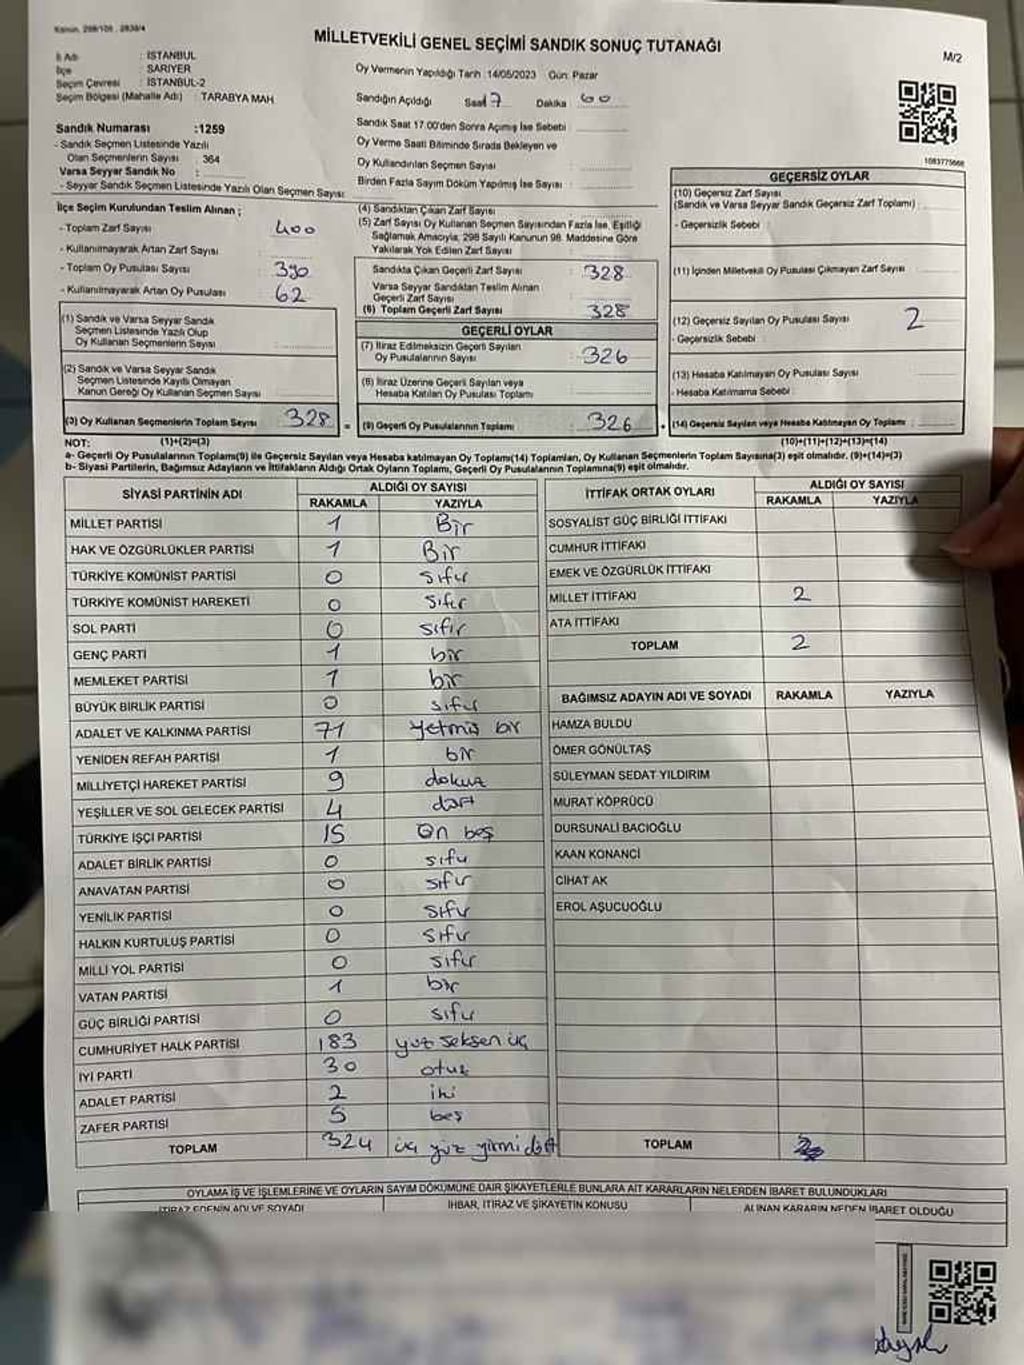 Kanun, 298/108 . 2839/4
MİLLETVEKİLİ GENEL SEÇİMİ SANDIK SONUÇ TUTANAĞI
M/2
İl Adı : İSTANBUL
İlçe : SARIYER
Seçim Çevresi : İSTANBUL-2
Seçim Bölgesi (Mahalle Adı) : TARABYA MAH
Oy Vermenin Yapıldığı Tarih :14/05/2023 Gün: Pazar
Sandığın Açıldığı Saat 7 Dakika 00
Sandık Saat 17.00'den Sonra Açılmış İse Sebebi :
Oy Verme Saati Bitiminde Sırada Bekleyen ve
Oy Kullandırılan Seçmen Sayısı :
Birden Fazla Sayım Döküm Yapılmış İse Sayısı :
Sandık Numarası :1259
- Sandık Seçmen Listesinde Yazılı
Olan Seçmenlerin Sayısı : 364
Varsa Seyyar Sandık No :
- Seyyar Sandık Seçmen Listesinde Yazılı Olan Seçmen Sayısı:
1083775668
İlçe Seçim Kurulundan Teslim Alınan ;
- Toplam Zarf Sayısı : 400
- Kullanılmayarak Artan Zarf Sayısı :
- Toplam Oy Pusulası Sayısı : 390
- Kullanılmayarak Artan Oy Pusulası : 62
(1) Sandık ve Varsa Seyyar Sandık
Seçmen Listesinde Yazılı Olup
Oy Kullanan Seçmenlerin Sayısı :
(2) Sandık ve Varsa Seyyar Sandık
Seçmen Listesinde Kayıtlı Olmayan
Kanun Gereği Oy Kullanan Seçmen Sayısı :
(3) Oy Kullanan Seçmenlerin Toplam Sayısı : 328
(4) Sandıktan Çıkan Zarf Sayısı :
(5) Zarf Sayısı Oy Kullanan Seçmen Sayısından Fazla İse, Eşitliği
Sağlamak Amacıyla, 298 Sayılı Kanunun 98. Maddesine Göre
Yakılarak Yok Edilen Zarf Sayısı :
Sandıkta Çıkan Geçerli Zarf Sayısı : 328
Varsa Seyyar Sandıktan Teslim Alınan
Geçerli Zarf Sayısı :
(6) Toplam Geçerli Zarf Sayısı : 328
GEÇERLİ OYLAR
(7) İtiraz Edilmeksizin Geçerli Sayılan
Oy Pusulalarının Sayısı : 326
(8) İtiraz Üzerine Geçerli Sayılan veya
Hesaba Katılan Oy Pusulası Toplamı :
= (9) Geçerli Oy Pusulalarının Toplamı : 326
GEÇERSİZ OYLAR
(10) Geçersiz Zarf Sayısı
(Sandık ve Varsa Seyyar Sandık Geçersiz Zarf Toplamı) :
- Geçersizlik Sebebi :
(11) İçinden Milletvekili Oy Pusulası Çıkmayan Zarf Sayısı :
(12) Geçersiz Sayılan Oy Pusulası Sayısı : 2
- Geçersizlik Sebebi :
(13) Hesaba Katılmayan Oy Pusulası Sayısı :
- Hesaba Katılmama Sebebi :
+ (14) Geçersiz Sayılan veya Hesaba Katılmayan Oy Toplamı :
NOT: (1)+(2)=(3)
(10)+(11)+(12)+(13)=(14)
a- Geçerli Oy Pusulalarının Toplamı(9) ile Geçersiz Sayılan veya Hesaba Katılmayan Oy Toplamı(14) Toplamları, Oy Kullanan Seçmenlerin Toplam Sayısına(3) eşit olmalıdır. (9)+(14)=(3)
b- Siyasi Partilerin, Bağımsız Adayların ve İttifakların Aldığı Ortak Oyların Toplamı, Geçerli Oy Pusulalarının Toplamına(9) eşit olmalıdır.
SİYASİ PARTİNİN ADI ALDIĞI OY SAYISI
RAKAMLA YAZIYLA
MİLLET PARTİSİ 1 Bir
HAK VE ÖZGÜRLÜKLER PARTİSİ 1 Bir
TÜRKİYE KOMÜNİST PARTİSİ 0 sıfır
TÜRKİYE KOMÜNİST HAREKETİ 0 sıfır
SOL PARTİ 0 sıfır
GENÇ PARTİ 1 bir
MEMLEKET PARTİSİ 1 bir
BÜYÜK BİRLİK PARTİSİ 0 sıfır
ADALET VE KALKINMA PARTİSİ 71 yetmiş bir
YENİDEN REFAH PARTİSİ 1 bir
MİLLİYETÇİ HAREKET PARTİSİ 9 dokuz
YEŞİLLER VE SOL GELECEK PARTİSİ 4 dört
TÜRKİYE İŞÇİ PARTİSİ 15 On beş
ADALET BİRLİK PARTİSİ 0 sıfır
ANAVATAN PARTİSİ 0 sıfır
YENİLİK PARTİSİ 0 sıfır
HALKIN KURTULUŞ PARTİSİ 0 sıfır
MİLLİ YOL PARTİSİ 0 sıfır
VATAN PARTİSİ 1 bir
GÜÇ BİRLİĞİ PARTİSİ 0 sıfır
CUMHURİYET HALK PARTİSİ 183 yüz seksen üç
İYİ PARTİ 30 otuz
ADALET PARTİSİ 2 iki
ZAFER PARTİSİ 5 beş
TOPLAM 324 üç yüz yirmi dört
İTTİFAK ORTAK OYLARI ALDIĞI OY SAYISI
RAKAMLA YAZIYLA
SOSYALİST GÜÇ BİRLİĞİ İTTİFAKI
CUMHUR İTTİFAKI
EMEK VE ÖZGÜRLÜK İTTİFAKI
MİLLET İTTİFAKI 2
ATA İTTİFAKI
TOPLAM 2
BAĞIMSIZ ADAYIN ADI VE SOYADI RAKAMLA YAZIYLA
HAMZA BULDU
ÖMER GÖNÜLTAŞ
SÜLEYMAN SEDAT YILDIRIM
MURAT KÖPRÜCÜ
DURSUNALİ BACIOĞLU
KAAN KONANCİ
CİHAT AK
EROL AŞUCUOĞLU
TOPLAM
OYLAMA İŞ VE İŞLEMLERİNE VE OYLARIN SAYIM DÖKÜMÜNE DAİR ŞİKAYETLERLE BUNLARA AİT KARARLARIN NELERDEN İBARET BULUNDUKLARI
İTİRAZ EDENİN ADI VE SOYADI İHBAR, İTİRAZ VE ŞİKAYETİN KONUSU ALINAN KARARIN NEDEN İBARET OLDUĞU